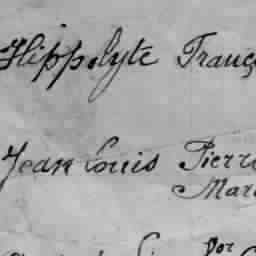 Hippolyte Franç
Jean Louis Pierre
Mar